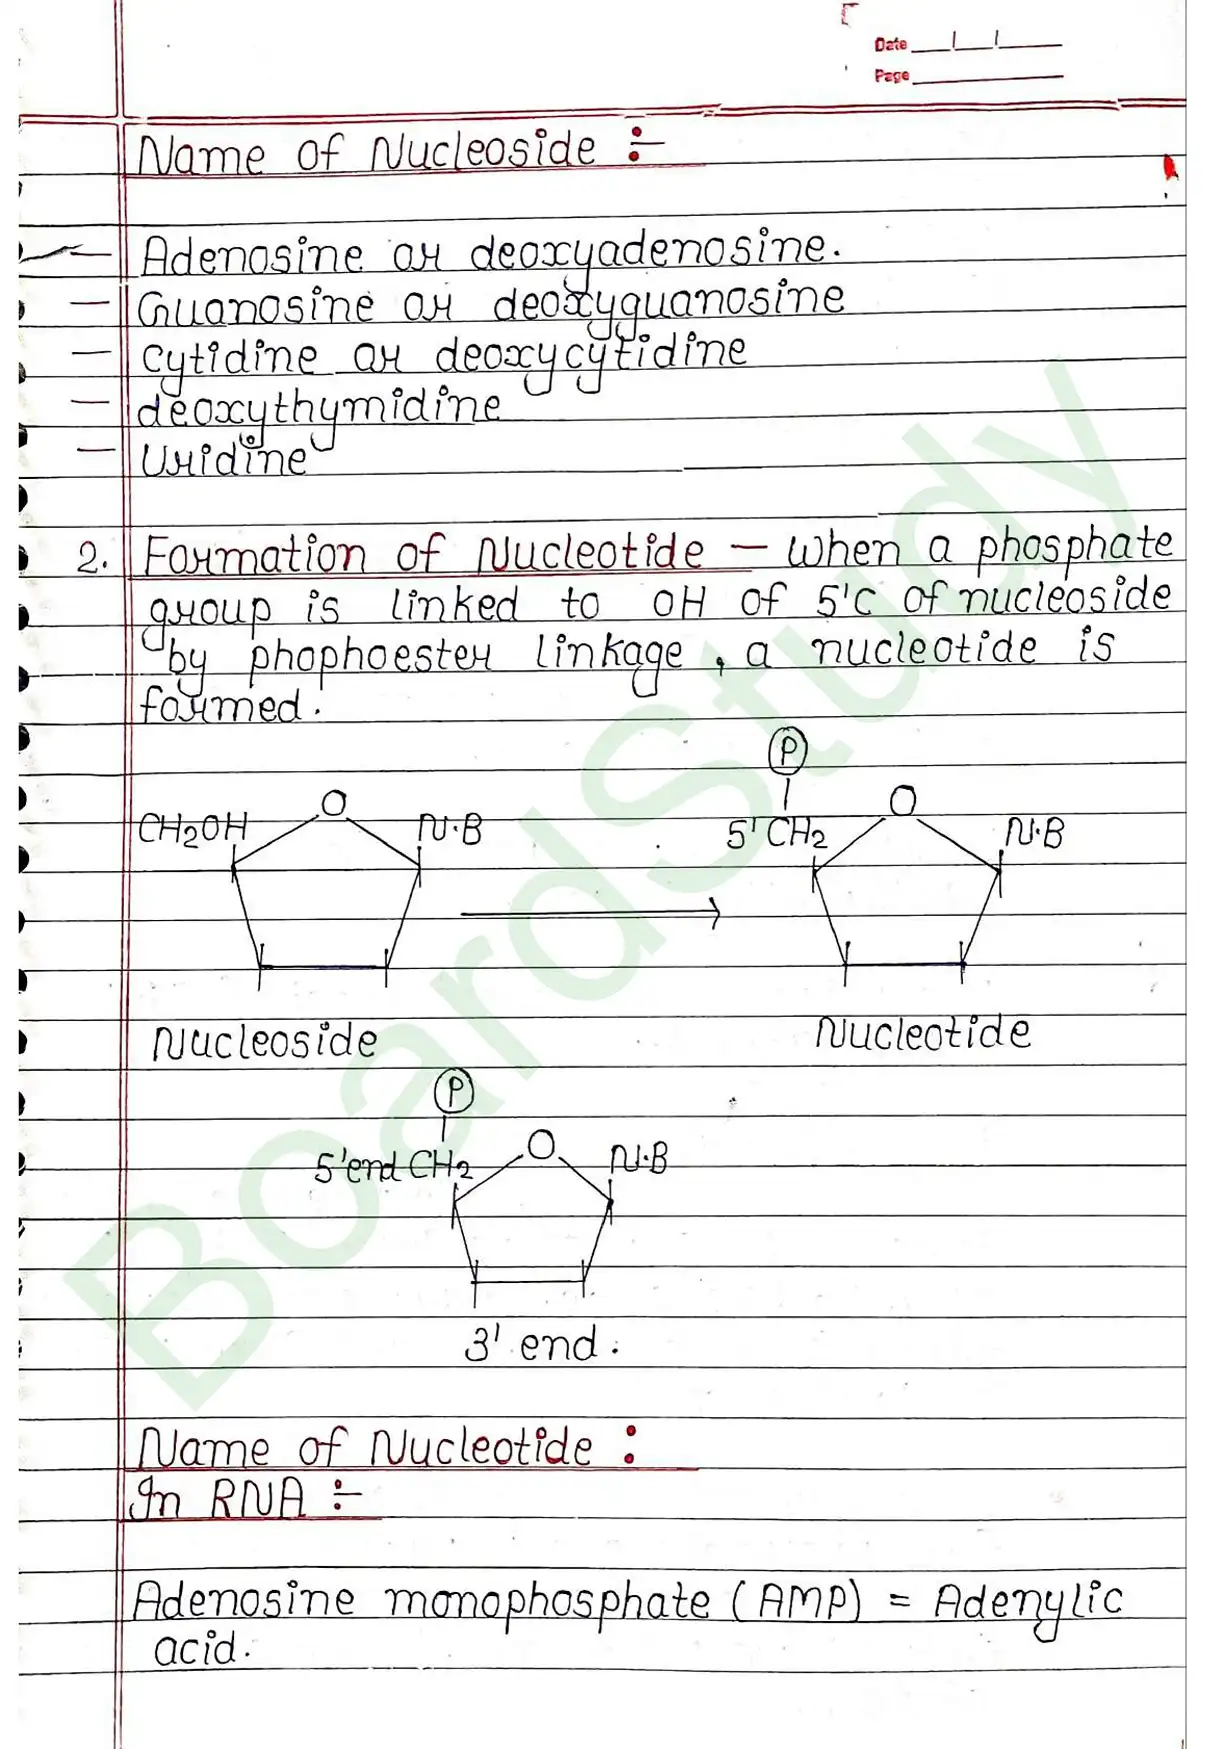 Date
Page
Name of Nucleoside :-
— Adenosine or deoxyadenosine.
— Guanosine or deoxyguanosine
— Cytidine or deoxycytidine
— deoxythymidine
— Uridine
2. Formation of Nucleotide — When a phosphate
group is linked to OH of 5'C of nucleoside
by phophoester linkage, a nucleotide is
formed.
P
CH2OH O N.B 5'CH2 O N.B
Nucleoside Nucleotide
P
5'end CH2 O N.B
3' end.
Name of Nucleotide :
In RNA :-
Adenosine monophosphate (AMP) = Adenylic
acid.
BoardStudy